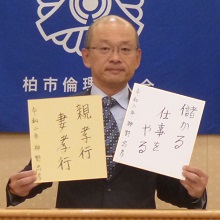 柏市倫理
会
儲かる
仕事を
やる
令和二年
親孝行
妻孝行
令和二年